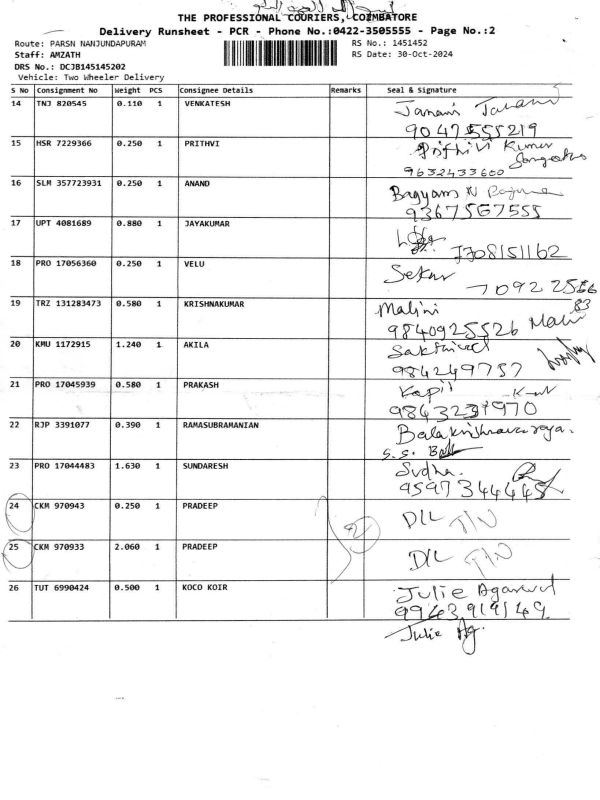 THE PROFESSIONAL COURIERS, COIMBATORE
Delivery Runsheet - PCR - Phone No.:0422-3505555 - Page No.:2
Route: PARSN NANJUNDAPURAM RS No.: 1451452
Staff: AMZATH RS Date: 30-Oct-2024
DRS No.: DCJB145145202
Vehicle: Two Wheeler Delivery
S No Consignment No Weight PCS Consignee Details Remarks Seal & Signature
14 TNJ 820545 0.110 1 VENKATESH Janani Janani
9047555219
15 HSR 7229366 0.250 1 PRITHVI Prithivi Kumar
9632433600
16 SLM 357723931 0.250 1 ANAND Bagyam N
9367567555
17 UPT 4081689 0.880 1 JAYAKUMAR
7708151162
18 PRO 17056360 0.250 1 VELU Sekar
70922566
83
19 TRZ 131283473 0.580 1 KRISHNAKUMAR Malini
9840925526 Malini
20 KMU 1172915 1.240 1 AKILA Sakthivel
984249757
21 PRO 17045939 0.580 1 PRAKASH Kapil
9843231970
22 RJP 3391077 0.390 1 RAMASUBRAMANIAN
S.S.
23 PRO 17044483 1.630 1 SUNDARESH Sudha.
9597344445
24 CKM 970943 0.250 1 PRADEEP D/L T/N
25 CKM 970933 2.060 1 PRADEEP D/L T/N
26 TUT 6990424 0.500 1 KOCO KOIR Julie Agarwal
9943919149
Julie Ag.